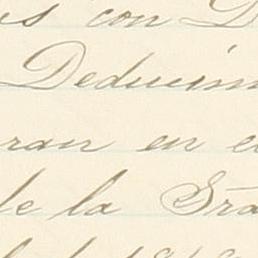 con D
Deducim
ran en c
de la Sra